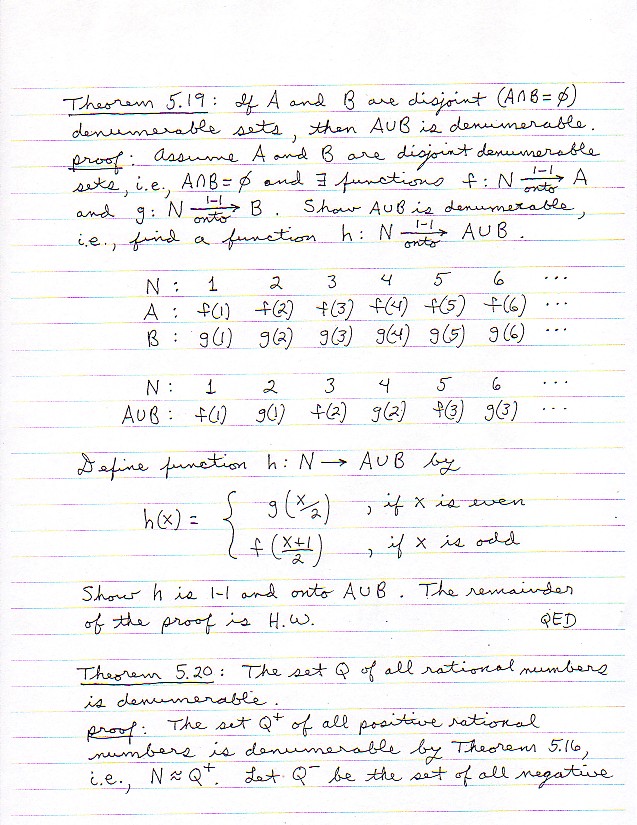 Theorem 5.19: If A and B are disjoint (A∩B=∅)
denumerable sets, then A∪B is denumerable.
proof: Assume A and B are disjoint denumerable
sets, i.e., A∩B=∅ and ∃ functions f: N 1-1 onto → A
and g: N 1-1 onto → B. Show A∪B is denumerable,
i.e., find a function h: N 1-1 onto → A∪B.
N: 1 2 3 4 5 6 ...
A: f(1) f(2) f(3) f(4) f(5) f(6) ...
B: g(1) g(2) g(3) g(4) g(5) g(6) ...
N: 1 2 3 4 5 6 ...
A∪B: f(1) g(1) f(2) g(2) f(3) g(3) ...
Define function h: N → A∪B by
h(x) = { g(x/2), if x is even
f((x+1)/2), if x is odd
Show h is 1-1 and onto A∪B. The remainder
of the proof is H.W. QED
Theorem 5.20: The set Q of all rational numbers
is denumerable.
proof: The set Q⁺ of all positive rational
numbers is denumerable by Theorem 5.16,
i.e., N ≈ Q⁺. Let Q⁻ be the set of all negative